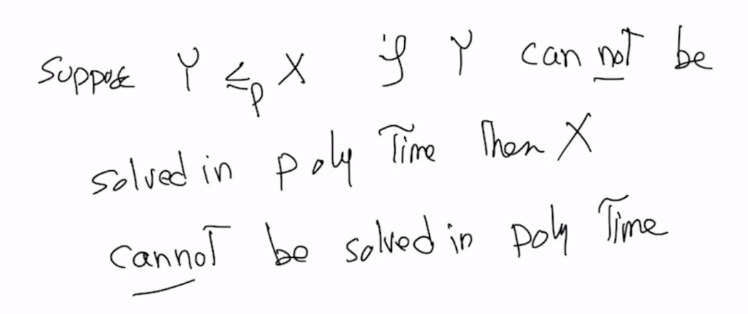 Suppose Y ≤p X if Y can not be
solved in poly Time Then X
cannot be solved in poly Time